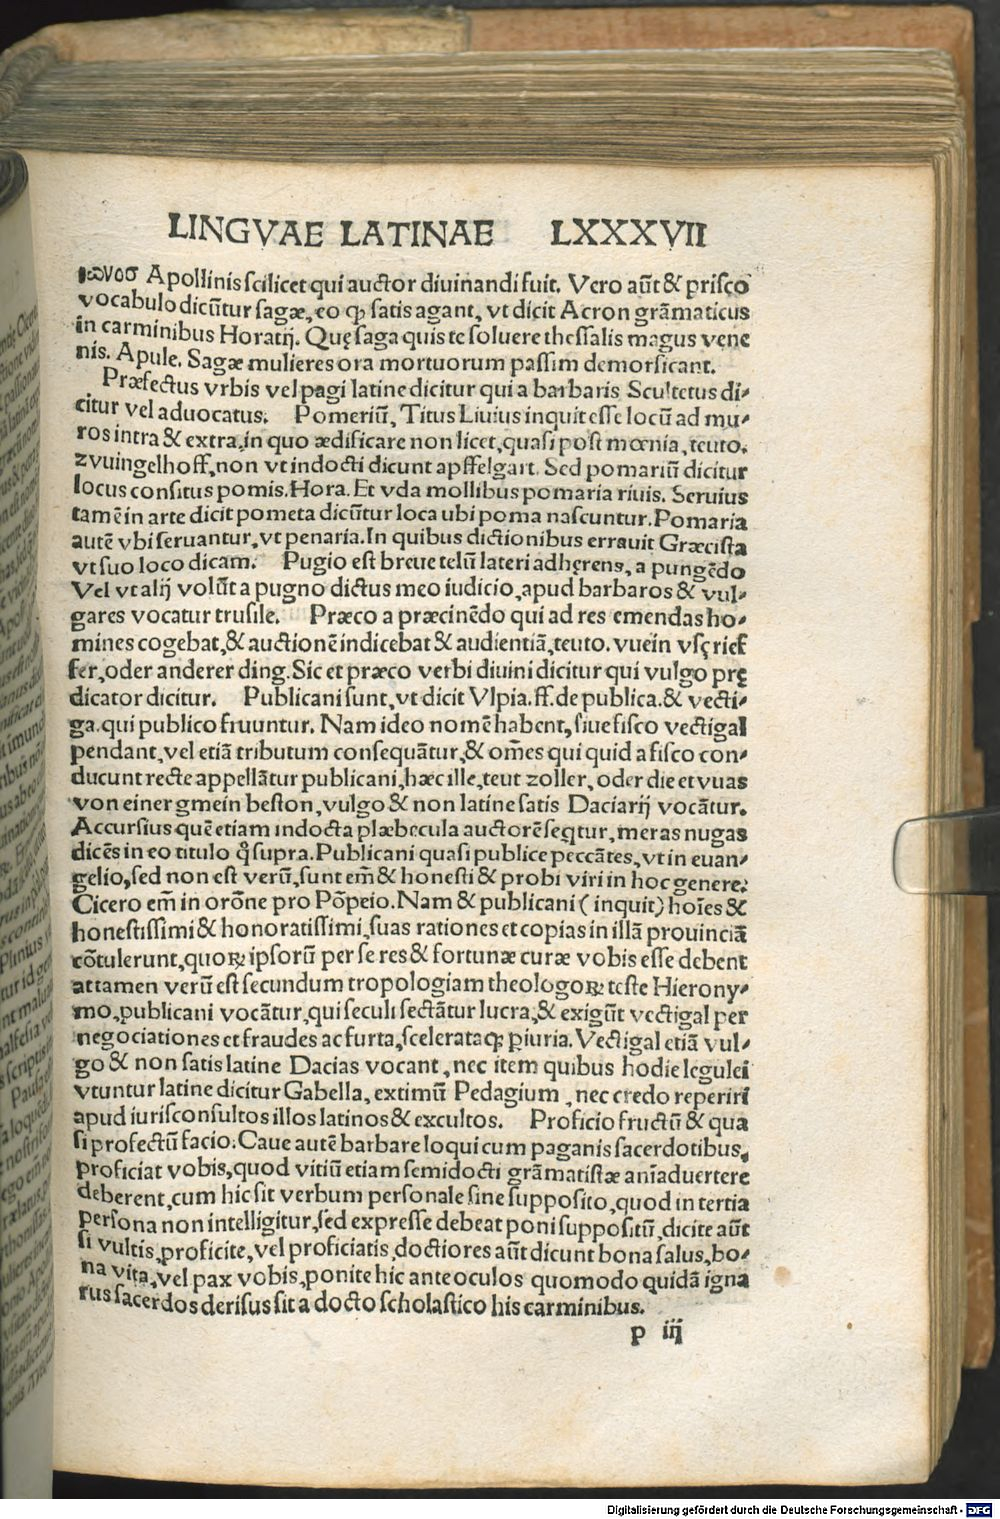 LINGVAE LATINAE LXXXVII
Apollinis scilicet qui auctor diuinandi fuit. Vero aūt & prisco
vocabulo dicūtur sagæ, eo ꝙ satis agant, vt dicit Acron grāmaticus
in carminibus Horatij. Quę saga quis te soluere thessalis magus vene
nis. Apule. Sagæ mulieres ora mortuorum passim demorsicant.
Præfectus vrbis vel pagi latine dicitur qui a barbaris Scultetus di⸗
citur vel aduocatus. Pomeriū, Titus Liuius inquit esse locū ad mu⸗
ros intra & extra, in quo ædificare non licet, quasi post mœnia, teuto.
zvuingelhoff, non vt indocti dicunt apffelgart. Sed pomariū dicitur
locus consitus pomis. Hora. Et vda mollibus pomaria riuis. Seruius
tamē in arte dicit pometa dicūtur loca ubi poma nascuntur. Pomaria
autē vbi seruantur, vt penaria. In quibus dictionibus errauit Græcista
vt suo loco dicam. Pugio est breue telū lateri adhęrens, a pungēdo
Vel vt alij volūt a pugno dictus meo iudicio, apud barbaros & vul⸗
gares vocatur trusile. Præco a præcinēdo qui ad res emendas ho⸗
mines cogebat, & auctionē indicebat & audientiā, teuto. vuein vsç rief
fer, oder anderer ding. Sic et præco verbi diuini dicitur qui vulgo prę
dicator dicitur. Publicani sunt, vt dicit Vlpia. ff. de publica. & vecti⸗
ga. qui publico fruuntur. Nam ideo nomē habent, siue fisco vectigal
pendant, vel etiā tributum consequātur, & om̄es qui quid a fisco con⸗
ducunt recte appellātur publicani, hæc ille, teut zoller, oder die et vuas
von einer gmein beston, vulgo & non latine satis Daciarij vocātur.
Accursius quē etiam indocta plæbecula auctorē seqtur, meras nugas
dicēs in eo titulo q̊ supra. Publicani quasi publice peccātes, vt in euan⸗
gelio, sed non est verū, sunt em̄ & honesti & probi viri in hoc genere.
Cicero em̄ in orōne pro Pōpeio. Nam & publicani (inquit) hoīes &
honestissimi & honoratissimi, suas rationes et copias in illā prouinciā
cōtulerunt, quoꝝ ipsorū per se res & fortunæ curæ vobis esse debent
attamen verū est secundum tropologiam theologoꝝ teste Hierony⸗
mo, publicani vocātur, qui seculi sectātur lucra, & exigūt vectigal per
negociationes et fraudes ac furta, scelerataqꝫ ꝑiuria. Vectigal etiā vul⸗
go & non satis latine Dacias vocant, nec item quibus hodie legulei
vtuntur latine dicitur Gabella, extimū Pedagium, nec credo reperiri
apud iurisconsultos illos latinos & excultos. Proficio fructū & qua
si profectū facio. Caue autē barbare loqui cum paganis sacerdotibus,
proficiat vobis, quod vitiū etiam semidocti grāmatistæ anīaduertere
deberent, cum hic sit verbum personale sine supposito, quod in tertia
persona non intelligitur, sed expresse debeat poni suppositū, dicite aūt
si vultis, proficite, vel proficiatis, doctiores aūt dicunt bona salus, bo⸗
na vita, vel pax vobis, ponite hic ante oculos quomodo quidā igna
rus sacerdos derisus sit a docto scholastico his carminibus.
p iij
Digitalisierung gefördert durch die Deutsche Forschungsgemeinschaft - DFG